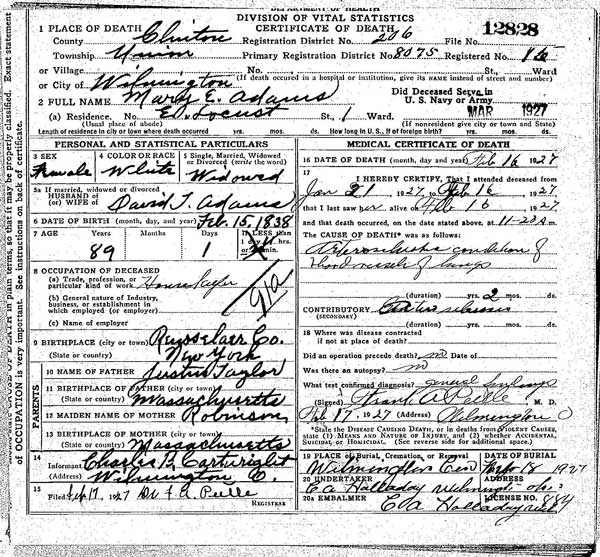 DEPARTMENT OF HEALTH
DIVISION OF VITAL STATISTICS
CERTIFICATE OF DEATH
12828
1 PLACE OF DEATH
County Clinton Registration District No. 276 File No.
Township Union Primary Registration District No 8075 Registered No. 16
or Village No. St., Ward
or City of Wilmington (If death occurred in a hospital or institution, give its NAME instead of street and number)
2 FULL NAME Mary E. Adams Did Deceased Serve in U. S. Navy or Army
MAR 1927
(a) Residence. No. E. Locust St., 1 Ward
(Usual place of abode) (If nonresident give city or town and State)
Length of residence in city or town where death occurred yrs. mos. ds. How long in U. S., if of foreign birth? yrs. mos. ds.
PERSONAL AND STATISTICAL PARTICULARS
3 SEX Female
4 COLOR OR RACE White
5 Single, Married, Widowed or Divorced (write the word) Widowed
5a If married, widowed or divorced
HUSBAND of
(or) WIFE of David T. Adams
6 DATE OF BIRTH (month, day, and year) Feb. 15, 1838
7 AGE Years 89 Months Days 1 If LESS than 1 day hrs. or min.
8 OCCUPATION OF DECEASED
(a) Trade, profession, or particular kind of work Housekeeper
(b) General nature of Industry, business, or establishment in which employed (or employer)
(c) Name of employer
9 BIRTHPLACE (city or town) Rensselaer Co.
(State or country) New York
PARENTS
10 NAME OF FATHER Justus Taylor
11 BIRTHPLACE OF FATHER (city or town)
(State or country) Massachusetts
12 MAIDEN NAME OF MOTHER Robinson
13 BIRTHPLACE OF MOTHER (city or town)
(State or country) Massachusetts
14 Informant Charles B. Cartwright
(Address) Wilmington O.
15 Filed Feb 17, 1927 Dr F. A. Peelle
REGISTRAR
MEDICAL CERTIFICATE OF DEATH
16 DATE OF DEATH (month, day and year) Feb 16 1927
17 I HEREBY CERTIFY, That I attended deceased from
Jan 21, 1927, to Feb 16, 1927
that I last saw her alive on Feb 16, 1927
and that death occurred, on the date stated above, at 11-20 A m.
The CAUSE OF DEATH* was as follows:
condition of
(duration) yrs. 2 mos. ds.
CONTRIBUTORY
(SECONDARY)
(duration) yrs. mos. ds.
18 Where was disease contracted
if not at place of death?
Did an operation precede death? no Date of
Was there an autopsy? no
What test confirmed diagnosis?
(Signed) Frank A Peelle M. D.
Feb 17, 1927 (Address) Wilmington O
*State the DISEASE CAUSING DEATH, or in deaths from VIOLENT CAUSES, state (1) MEANS AND NATURE OF INJURY, and (2) whether ACCIDENTAL, SUICIDAL, or HOMICIDAL. (See reverse side for additional space.)
19 PLACE of Burial, Cremation, or Removal DATE OF BURIAL
Wilmington Cem Feb 18 1927
20 UNDERTAKER ADDRESS
E A Holladay
20a EMBALMER LICENSE No.
E A Holladay
OF OCCUPATION is very important. See instructions on back of certificate.
CAUSE OF DEATH in plain terms, so that it may be properly classified. Exact statement